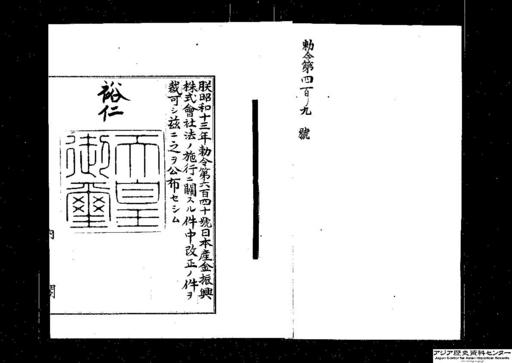 勅令第四百九號
朕昭和十三年勅令第六百四十號日本産金振興
株式會社法ノ施行ニ關スル件中改正ノ件ヲ
裁可シ茲ニ之ヲ公布セシム
裕仁
天皇
御璽
内
閣
アジア歴史資料センター
Japan Center for Asian Historical Records